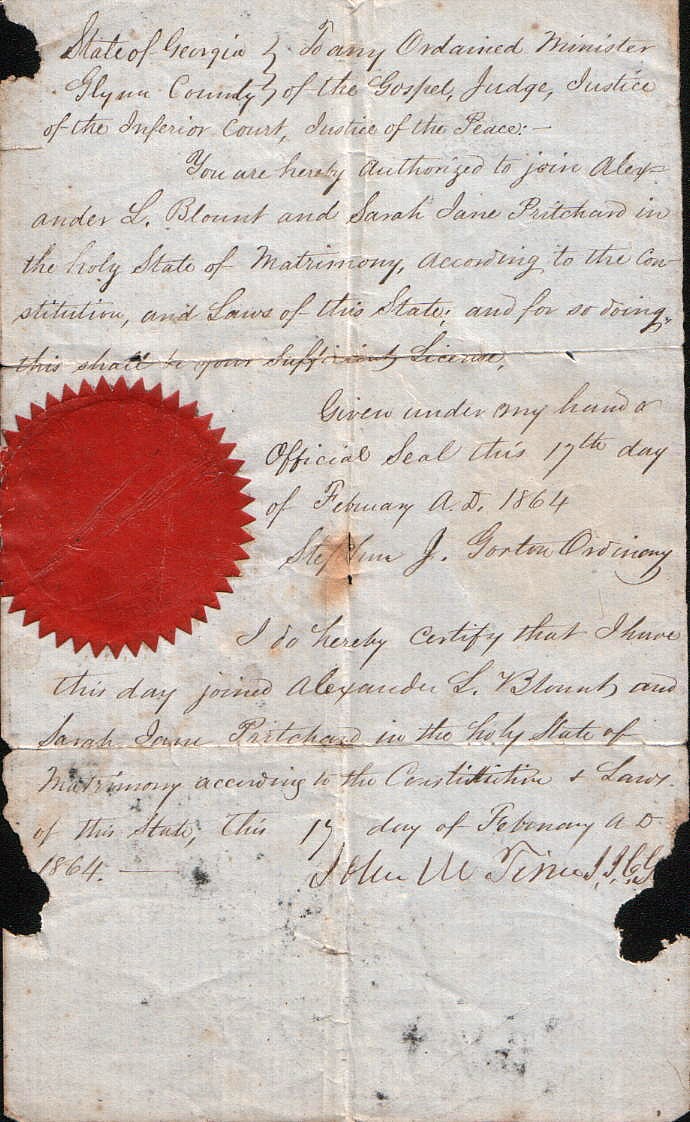 State of Georgia } To any Ordained Minister
Glynn County } of the Gospel, Judge, Justice
of the Inferior Court, Justice of the Peace:—
You are hereby Authorized to join Alex-
ander L. Blount and Sarah Jane Pritchard in
the holy State of Matrimony, according to the Con-
stitution, and Laws of this State; and for so doing,
this shall be your Sufficient License,
Given under my hand &
Official Seal this 17th day
of February A.D. 1864
Stephen J. Gorton Ordinary
I do hereby certify that I have
this day joined Alexander L. Blount, and
Sarah Jane Pritchard in the holy State of
Matrimony according to the Constitution & Laws.
of this State, This 17 day of February A D
1864. —
John M J.I.C.G